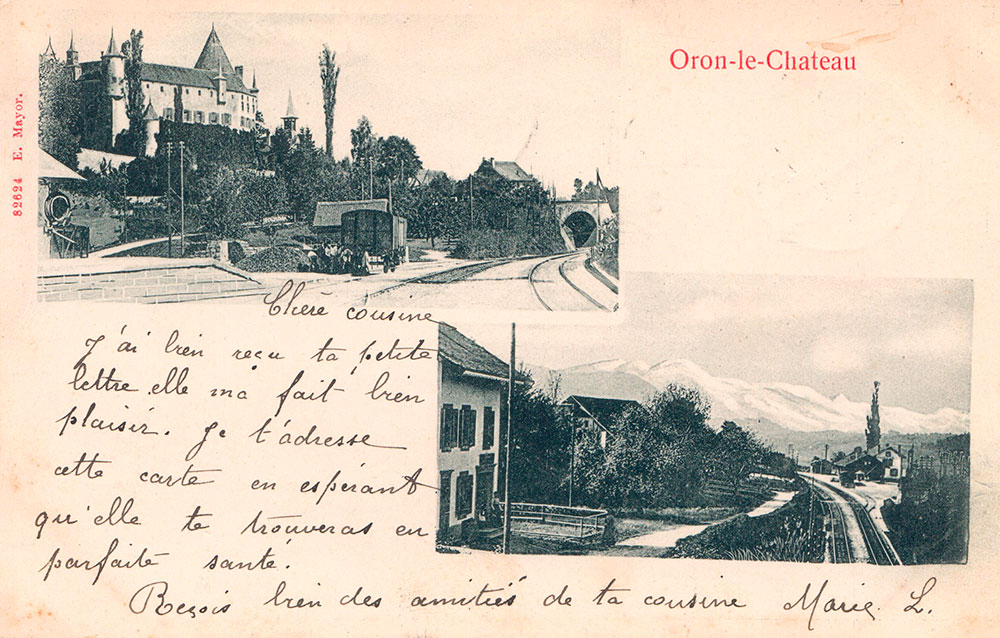 Oron-le-Chateau
82624 E. Mayor.
Chère cousine
J'ai bien reçu ta petite
lettre elle m'a fait bien
plaisir. Je t'adresse
cette carte en espérant
qu'elle te trouveras en
parfaite santé.
Reçois bien des amitiés de ta cousine Marie L.